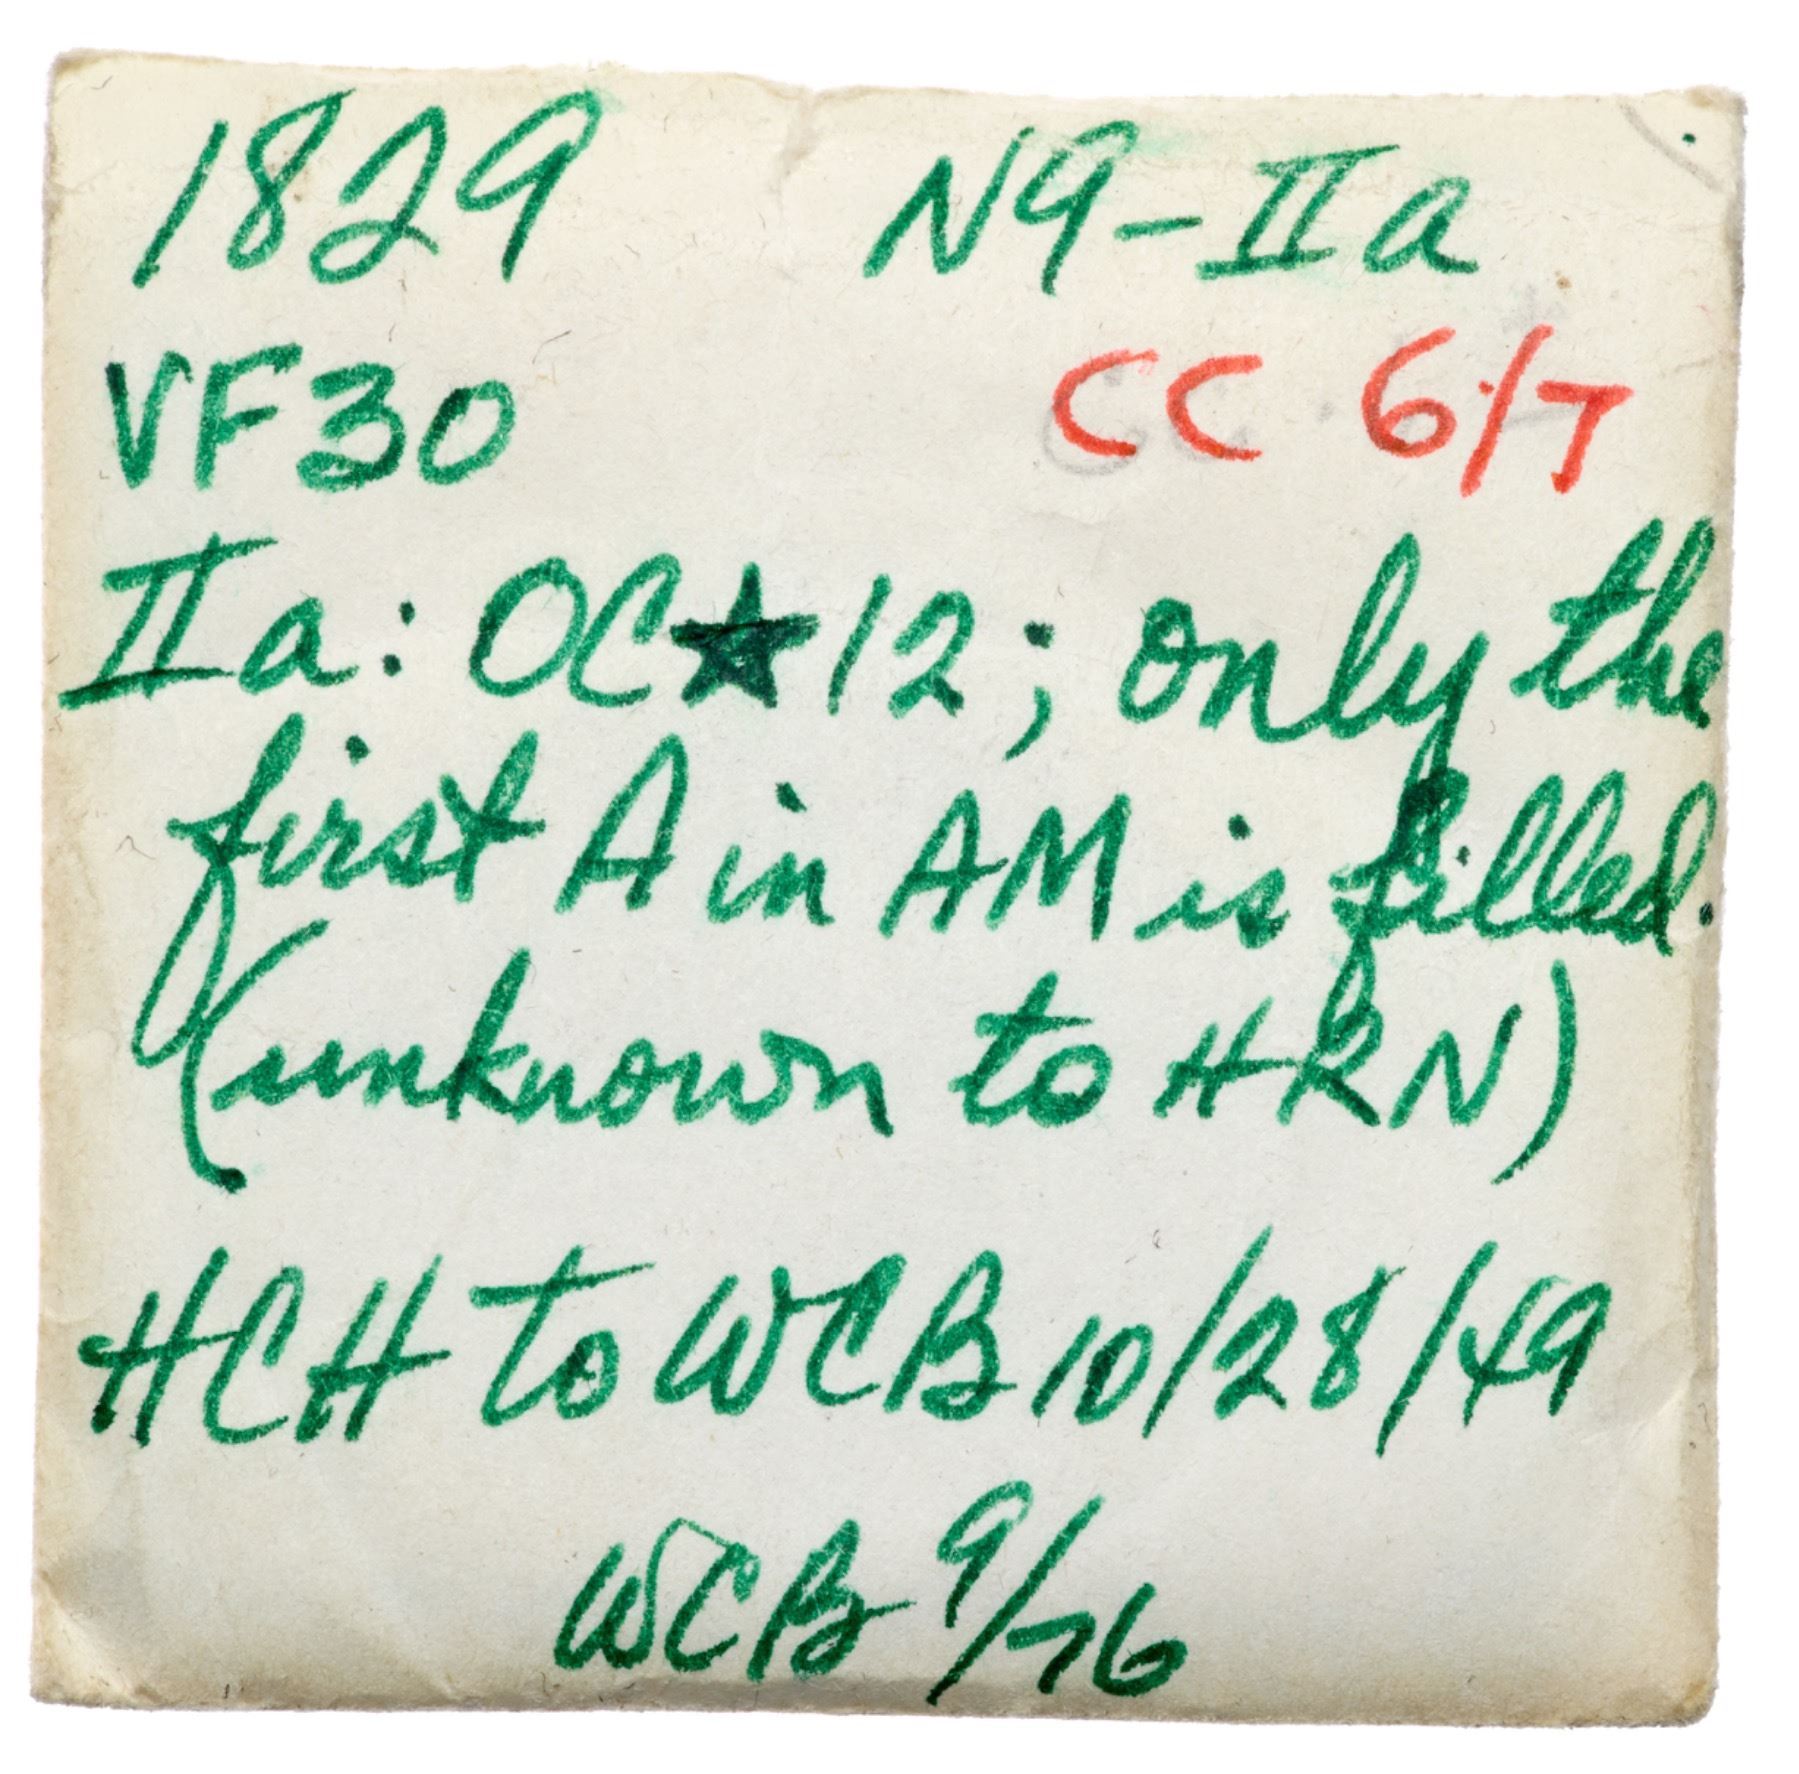 1829 N9-IIa
VF30 CC 6/7
IIa: OC★12; only the
first A in AM is filled.
(unknown to HRN)
HCH to WCB 10/28/49
WCB 9/76